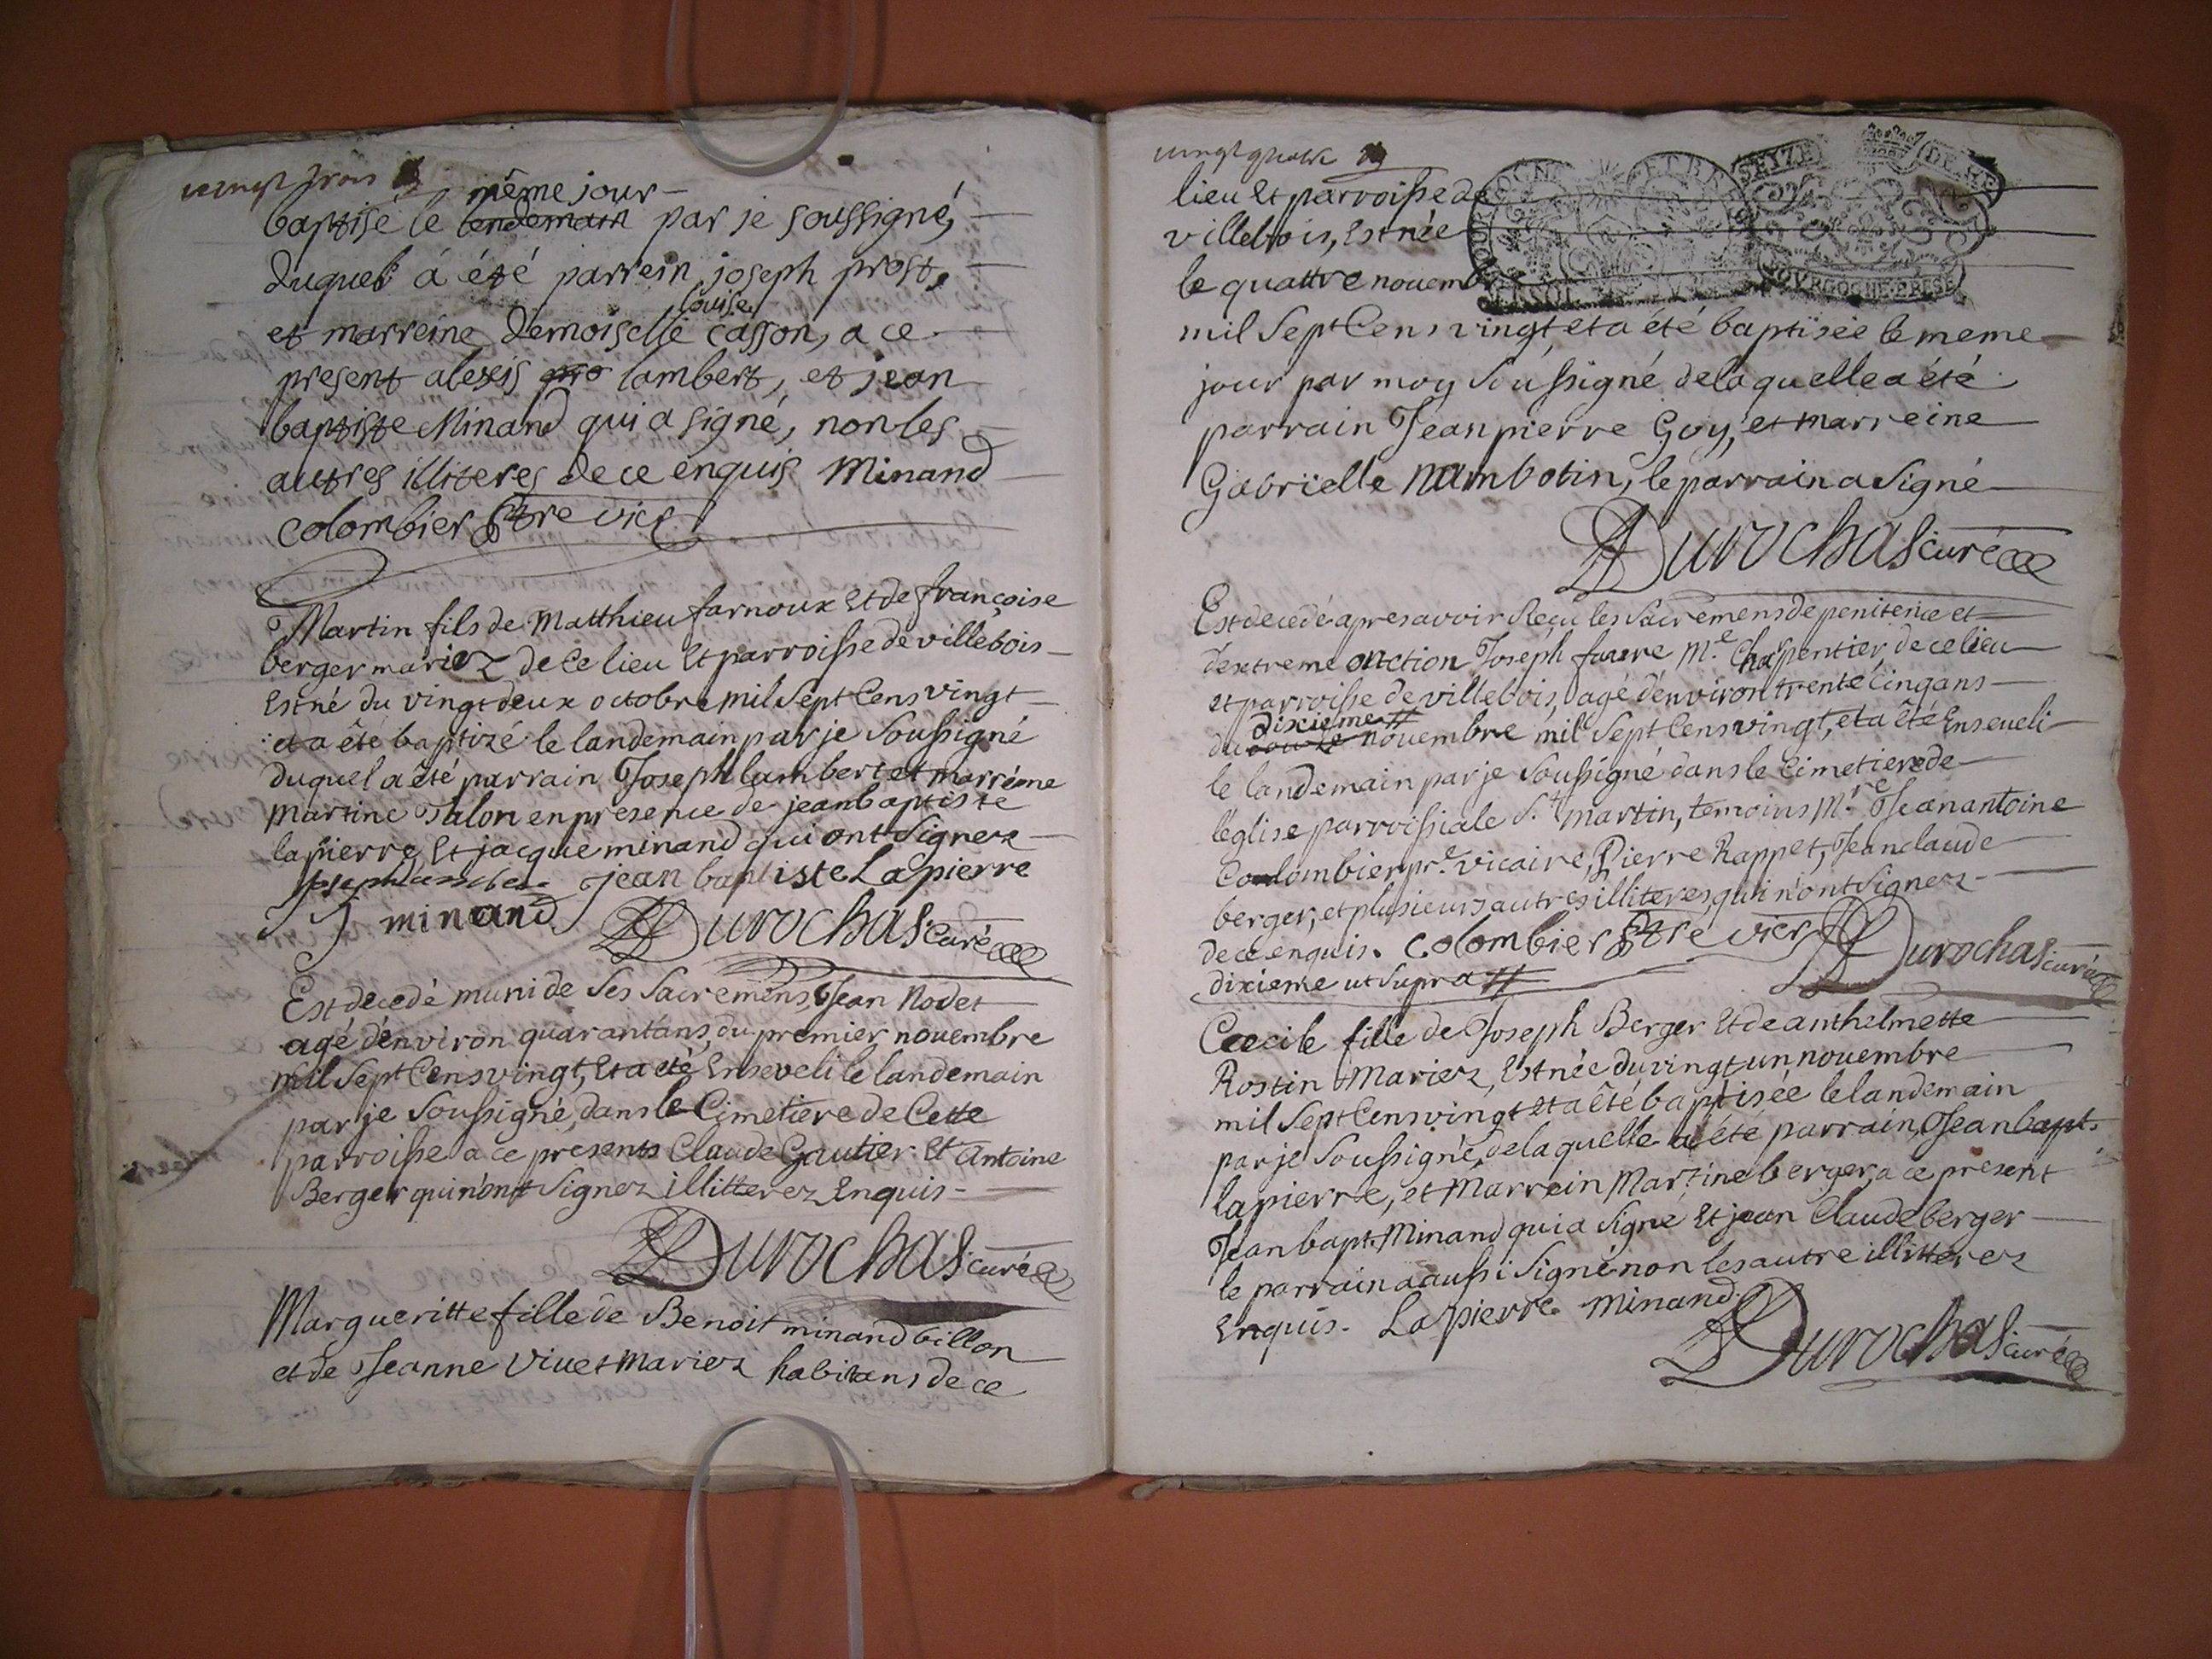 vingt trois
même jour
baptisé le lendemain par je soussigné,
duquel á été parrein joseph prost,
louise
et marreine demoiselle casson, a ce
present alexis lambert, et jean
baptiste Minand qui a signé, non les
autres illiteres de ce enquis Minand
colombier ptre vice
Martin fils de Matthieu farnoux Et de françoise
berger mariez de ce lieu Et parroisse de villebois
Est né du vingt deux octobre mil Sept Cens vingt
et a été baptizé le landemain par je Soussigné
duquel a été parrain Joseph lambert et marréine
martine Talon en presence de jean baptiste
lapierre Et jacque minand qui ont Signez
joseph lambert jean baptiste Lapierre
J minand Durochas curé
Est decedé muni de Ses Sacremens, Jean Nodet
agé d'environ quarant'ans, du premier nouembre
mil Sept Cens vingt, Et a eté Enseveli le landemain
par je Soussigné, dans le Cimetiere de Cette
parroisse a ce presents Claude Gautier Et Antoine
Berger qui n'ont Signez illitterez Enquis
Durochas curé
Margueritte fille de Benoit minand billon
et de Jeanne Viuet Mariez habitans de ce
vingt quatre
lieu Et parroisse de
villebois, Est née
le quattre nouembre
mil Sept Cens vingt, et a été baptisée le meme
jour par moy Soussigné de laquelle a été
parrain Jean pierre Guy, et marreine
Gabrielle nambotin, le parrain a Signé
Durochas curé
SEIZE DE
BOVRGOGNE BRESSE
Est decedé apres avoir Reçu les Sacremens de penitence et
d'extreme onction Joseph faure Me. Charpentier, de ce lieu
et parroisse de villebois, agé d'environ trente Cinq ans
dixieme //
du nouembre mil Sept Cens vingt, et a été Enseueli
le landemain par je Soussigné dans le Cimetiere de
l'église parroissiale St. Martin, temoins Mre Jean antoine
Coulombier pre. vicaire, Pierre Rappet, Jean claude
berger, et plusieurs autres illiteres, qui n'ont Signez
de ce enquis. Colombier ptre vice Durochas curé
dixieme ut Supra //
Cecile fille de Joseph Berger Et de anthelmette
Rostin Mariez, Est née du vingt un nouembre
mil Sept Cens vingt et a été baptisée le landemain
par je Soussigné, de laquelle a été parrain, Jean bapt.
lapierre, et Marrein Martine berger, a ce present
Jean bapt. Minand qui a Signé Et jean Claude berger
le parrain a aussi Signé non les autre illitterez
Enquis. Lapierre Minand
Durochas curé